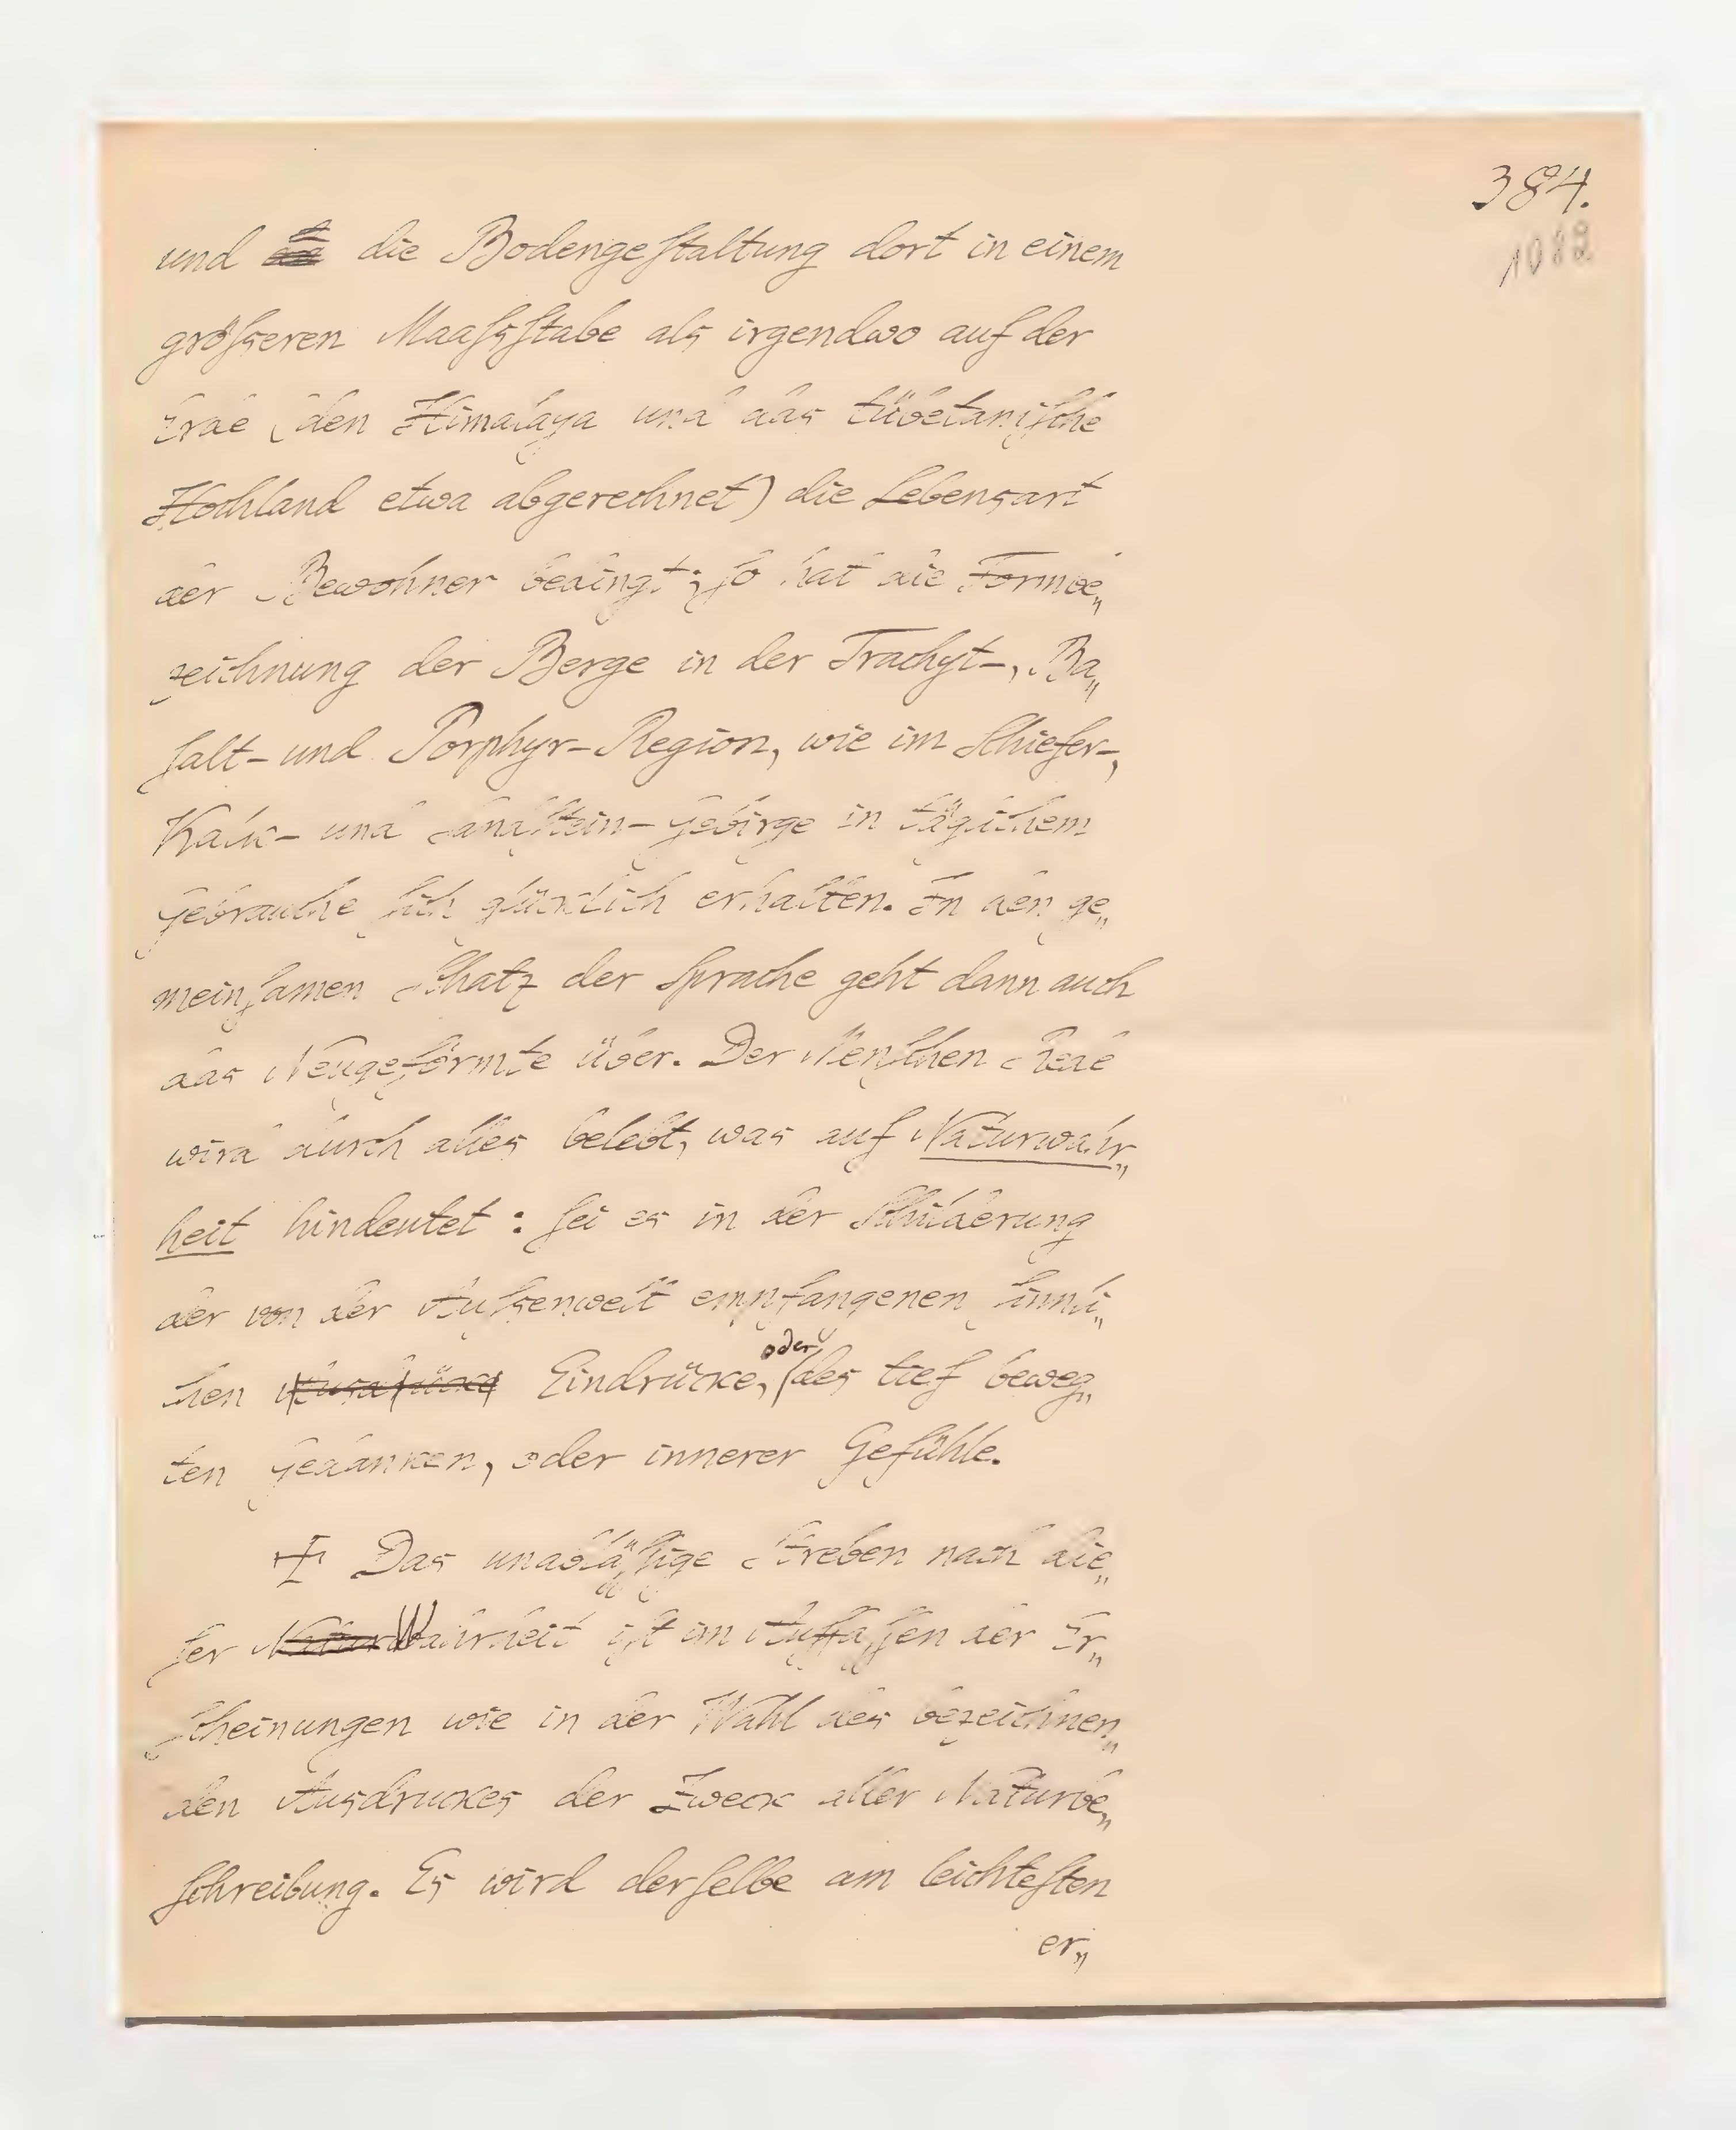 384.
1082
und die Bodengeſtaltung dort in einem
gröſseren Maaſsſtabe als irgendwo auf der
Erde (den Himalaya und das tübetaniſche
Hochland etwa abgerechnet) die Lebensart
der Bewohner bedingt; ſo hat die Formbe„
zeichnung der Berge in der Trachyt-, Ba„
ſalt- und Porphyr-Region, wie im Schiefer-,
Kalk- und Sandſtein-Gebirge in täglichem
Gebrauche ſich glücklich erhalten. In den ge„
meinſamen Schatz der Sprache geht dann auch
das Neugeformte über. Der Menſchen Rede
wird durch alles belebt, was auf Naturwahr„
heit hindeutet: ſei es in der Schilderung
der von der Auſsenwelt empfangenen ſinnli„
oder
chen Eindrücke, des tief beweg„
ten Gedanken, oder innerer Gefühle.
Das unabläſſige Streben nach die„
ſer Natur Wahrheit iſt im Auffaſſen der Er„
ſcheinungen wie in der Wahl des bezeichnen„
den Ausdruckes der Zweck aller Naturbe„
ſchreibung. Es wird derſelbe am leichteſten
er„